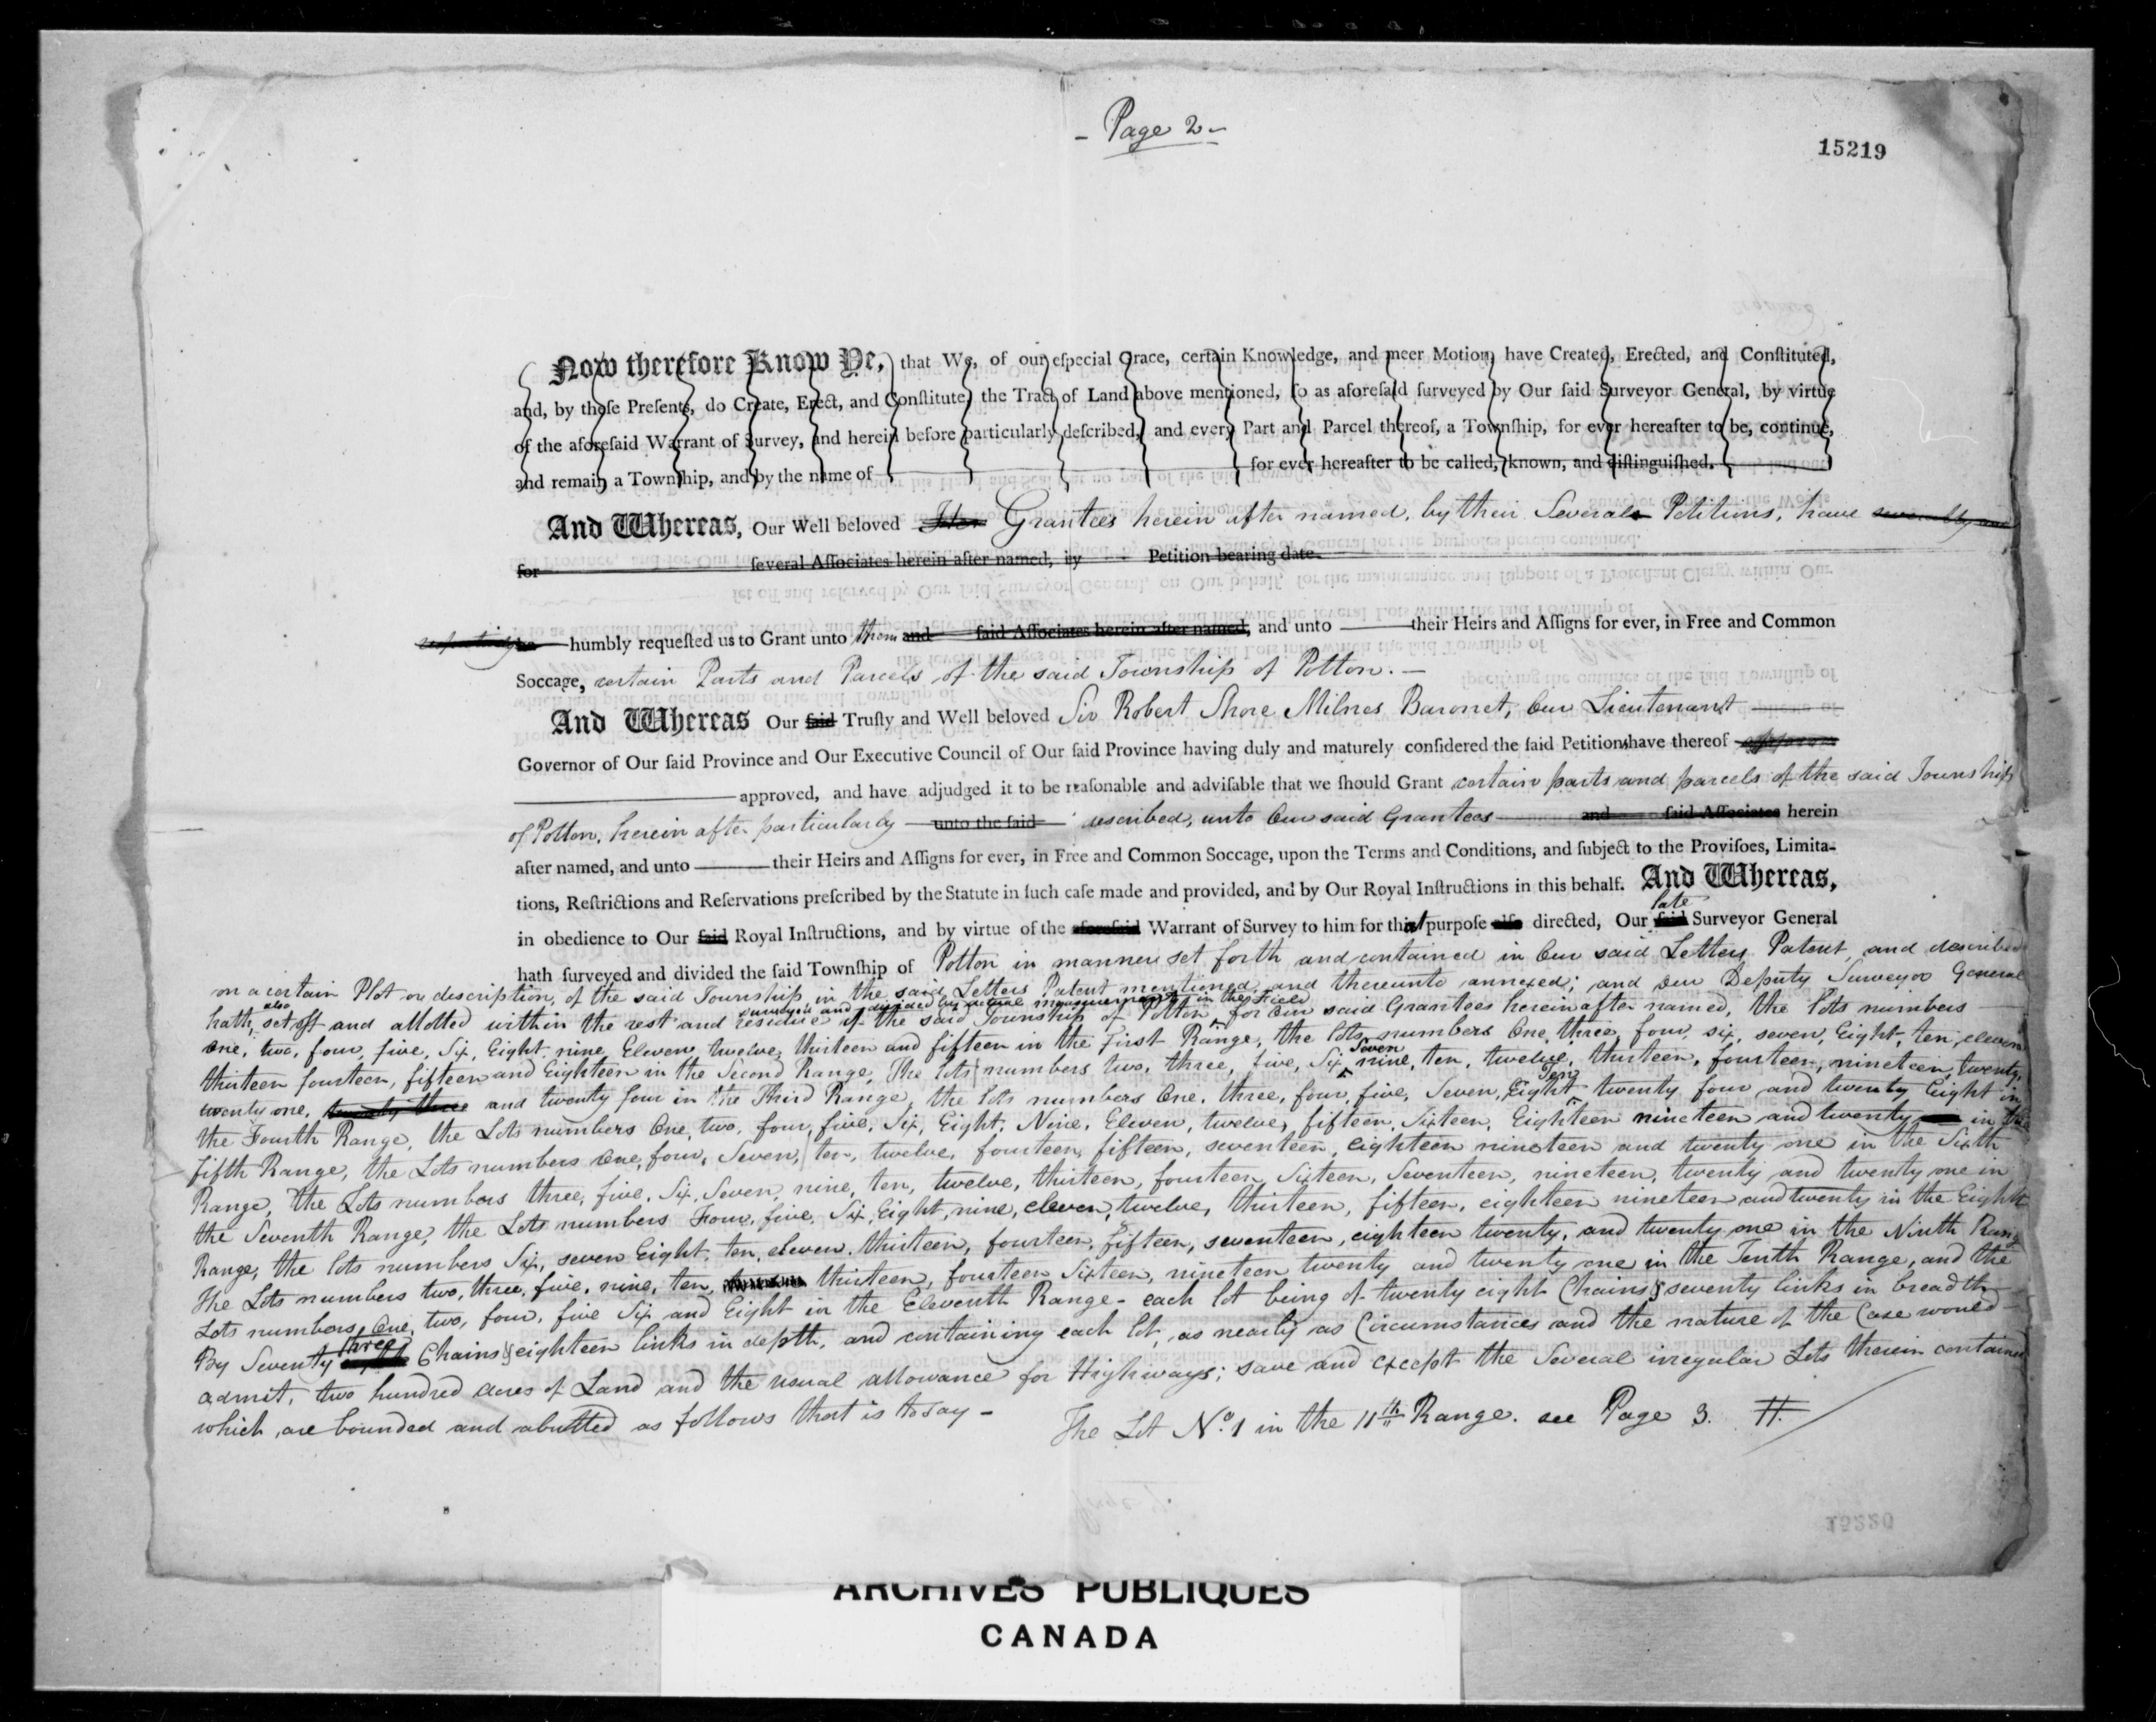 - Page 2 -
15219
Now therefore Know Ye, that We, of our especial Grace, certain Knowledge, and meer Motion, have Created, Erected, and Constituted,
and, by those Presents, do Create, Erect, and Constitute, the Tract of Land above mentioned, so as aforesaid surveyed by Our said Surveyor General, by virtue
of the aforesaid Warrant of Survey, and herein before particularly described, and every Part and Parcel thereof, a Township, for ever hereafter to be, continue,
and remain a Township, and by the name of for ever hereafter to be called, known, and distinguished.
And Whereas, Our Well beloved Grantees herein after named, by their Several Petitions, have
for several Associates herein after named, by Petition bearing date
humbly requested us to Grant unto them and said Associates herein after named, and unto their Heirs and Assigns for ever, in Free and Common
Soccage, certain Parts and Parcels of the said Township of Potton. -
And Whereas Our said Trusty and Well beloved Sir Robert Shore Milnes Baronet, Our Lieutenant
Governor of Our said Province and Our Executive Council of Our said Province having duly and maturely considered the said Petitions, have thereof
approved, and have adjudged it to be reasonable and advisable that we should Grant certain parts and parcels of the said Township
of Potton, herein after particularly unto the said described, unto Our said Grantees and said Associates herein
after named, and unto their Heirs and Assigns for ever, in Free and Common Soccage, upon the Terms and Conditions, and subject to the Provisoes, Limita-
tions, Restrictions and Reservations prescribed by the Statute in such case made and provided, and by Our Royal Instructions in this behalf. And Whereas,
late
in obedience to Our said Royal Instructions, and by virtue of the aforesaid Warrant of Survey to him for that purpose also directed, Our said Surveyor General
hath surveyed and divided the said Township of Potton in manner set forth and contained in Our said Letters Patent, and described
on a certain Plot or description, of the said Township, in the said Letters Patent mentioned, and thereunto annexed; and our Deputy Surveyor General
also surveyed and divided by actual measurement in the Field
hath, set off and allotted within the rest and residue of the said Township of Potton, for Our said Grantees herein after named, the lots numbers
One, two, four, five, Six, Eight, nine, Eleven, twelve, thirteen and fifteen in the first Range, the lots numbers One, three, four, six, seven, Eight, ten, eleven
Seven
thirteen fourteen, fifteen and Eighteen in the Second Range, The lots numbers two, three, five, Six, nine, ten, twelve, thirteen, fourteen, nineteen, twenty,
Ten
twenty one, twenty three and twenty four in the Third Range, the lots numbers One, three, four, five, Seven, Eight twenty four and twenty Eight in
the Fourth Range, the Lots numbers One, two, four, five, Six, Eight, Nine, Eleven, twelve, fifteen, Sixteen, Eighteen nineteen and twenty in the
fifth Range, the Lots numbers One, four, Seven, ten, twelve, fourteen, fifteen, seventeen, eighteen nineteen and twenty one in the Sixth
Range, the Lots numbers three, five, Six, Seven, nine, ten, twelve, thirteen, fourteen, Sixteen, Seventeen, nineteen, twenty and twenty one in
the Seventh Range, the Lots numbers Four, five, Six, Eight, nine, eleven, twelve, thirteen, fifteen, eighteen nineteen and twenty in the Eighth
Range, the lots numbers Six, seven Eight, ten, eleven, thirteen, fourteen, fifteen, seventeen, eighteen twenty, and twenty one in the Ninth Range
The Lots numbers two, three, five, nine, ten, thirteen, fourteen Sixteen, nineteen twenty and twenty one in the Tenth Range, and the
Lots numbers One, two, four, five Six and Eight in the Eleventh Range - each lot being of twenty eight Chains & seventy links in breadth
three
By Seventy Chains & eighteen links in depth, and containing each lot, as nearly as Circumstances and the nature of the Case would
admit, two hundred acres of Land and the usual allowance for Highways; save and except the Several irregular Lots therein contained
which are bounded and abutted as follows that is to say -
The Lot No. 1 in the 11th Range. see Page 3. #
15220
ARCHIVES PUBLIQUES
CANADA